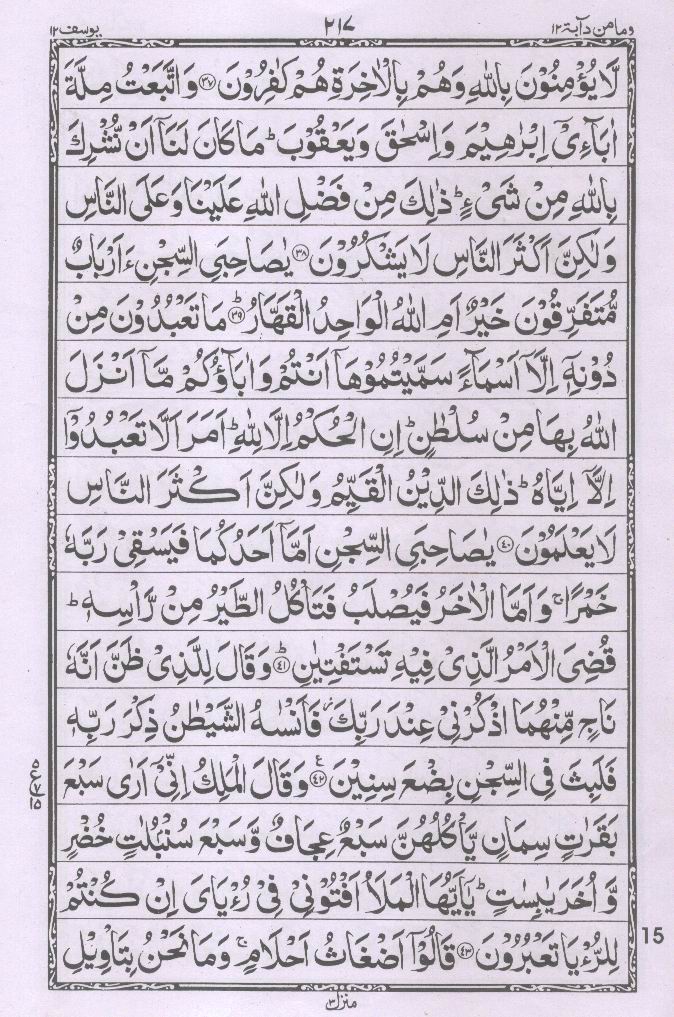 وما من دآبة ١٢ ٢١٧ یوسف ١٢
لَّا يُؤْمِنُوْنَ بِاللّٰهِ وَهُمْ بِالْاٰخِرَةِ هُمْ كٰفِرُوْنَ ﴿٣٧﴾ وَاتَّبَعْتُ مِلَّةَ
اٰبَآءِیْۤ اِبْرٰهِيْمَ وَاِسْحٰقَ وَيَعْقُوْبَ ؕ مَا كَانَ لَنَاۤ اَنْ نُّشْرِكَ
بِاللّٰهِ مِنْ شَیْءٍ ؕ ذٰلِكَ مِنْ فَضْلِ اللّٰهِ عَلَيْنَا وَعَلَی النَّاسِ
وَلٰكِنَّ اَكْثَرَ النَّاسِ لَا يَشْكُرُوْنَ ﴿٣٨﴾ يٰصَاحِبَیِ السِّجْنِ ءَاَرْبَابٌ
مُّتَفَرِّقُوْنَ خَيْرٌ اَمِ اللّٰهُ الْوَاحِدُ الْقَهَّارُ ﴿٣٩﴾ؕ مَا تَعْبُدُوْنَ مِنْ
دُوْنِهٖۤ اِلَّاۤ اَسْمَآءً سَمَّيْتُمُوْهَاۤ اَنْتُمْ وَاٰبَآؤُكُمْ مَّاۤ اَنْزَلَ
اللّٰهُ بِهَا مِنْ سُلْطٰنٍ ؕ اِنِ الْحُكْمُ اِلَّا لِلّٰهِ ؕ اَمَرَ اَلَّا تَعْبُدُوْۤا
اِلَّاۤ اِيَّاهُ ؕ ذٰلِكَ الدِّيْنُ الْقَيِّمُ وَلٰكِنَّ اَكْثَرَ النَّاسِ
لَا يَعْلَمُوْنَ ﴿٤٠﴾ يٰصَاحِبَیِ السِّجْنِ اَمَّاۤ اَحَدُكُمَا فَيَسْقِیْ رَبَّهٗ
خَمْرًا ۚ وَاَمَّا الْاٰخَرُ فَيُصْلَبُ فَتَاْكُلُ الطَّيْرُ مِنْ رَّاْسِهٖ ؕ
قُضِیَ الْاَمْرُ الَّذِیْ فِيْهِ تَسْتَفْتِيٰنِ ﴿٤١﴾ؕ وَقَالَ لِلَّذِیْ ظَنَّ اَنَّهٗ
نَاجٍ مِّنْهُمَا اذْكُرْنِیْ عِنْدَ رَبِّكَ ؗ فَاَنْسٰىهُ الشَّيْطٰنُ ذِكْرَ رَبِّهٖ
فَلَبِثَ فِی السِّجْنِ بِضْعَ سِنِيْنَ ﴿٤٢﴾ع وَقَالَ الْمَلِكُ اِنِّیْۤ اَرٰی سَبْعَ
بَقَرٰتٍ سِمَانٍ يَّاْكُلُهُنَّ سَبْعٌ عِجَافٌ وَّسَبْعَ سُنْۢبُلٰتٍ خُضْرٍ
وَّاُخَرَ يٰبِسٰتٍ ؕ يٰۤاَيُّهَا الْمَلَاُ اَفْتُوْنِیْ فِیْ رُءْيَایَ اِنْ كُنْتُمْ
لِلرُّءْيَا تَعْبُرُوْنَ ﴿٤٣﴾ قَالُوْۤا اَضْغَاثُ اَحْلَامٍ ۚ وَمَا نَحْنُ بِتَاْوِيْلِ
15
منزل ٣